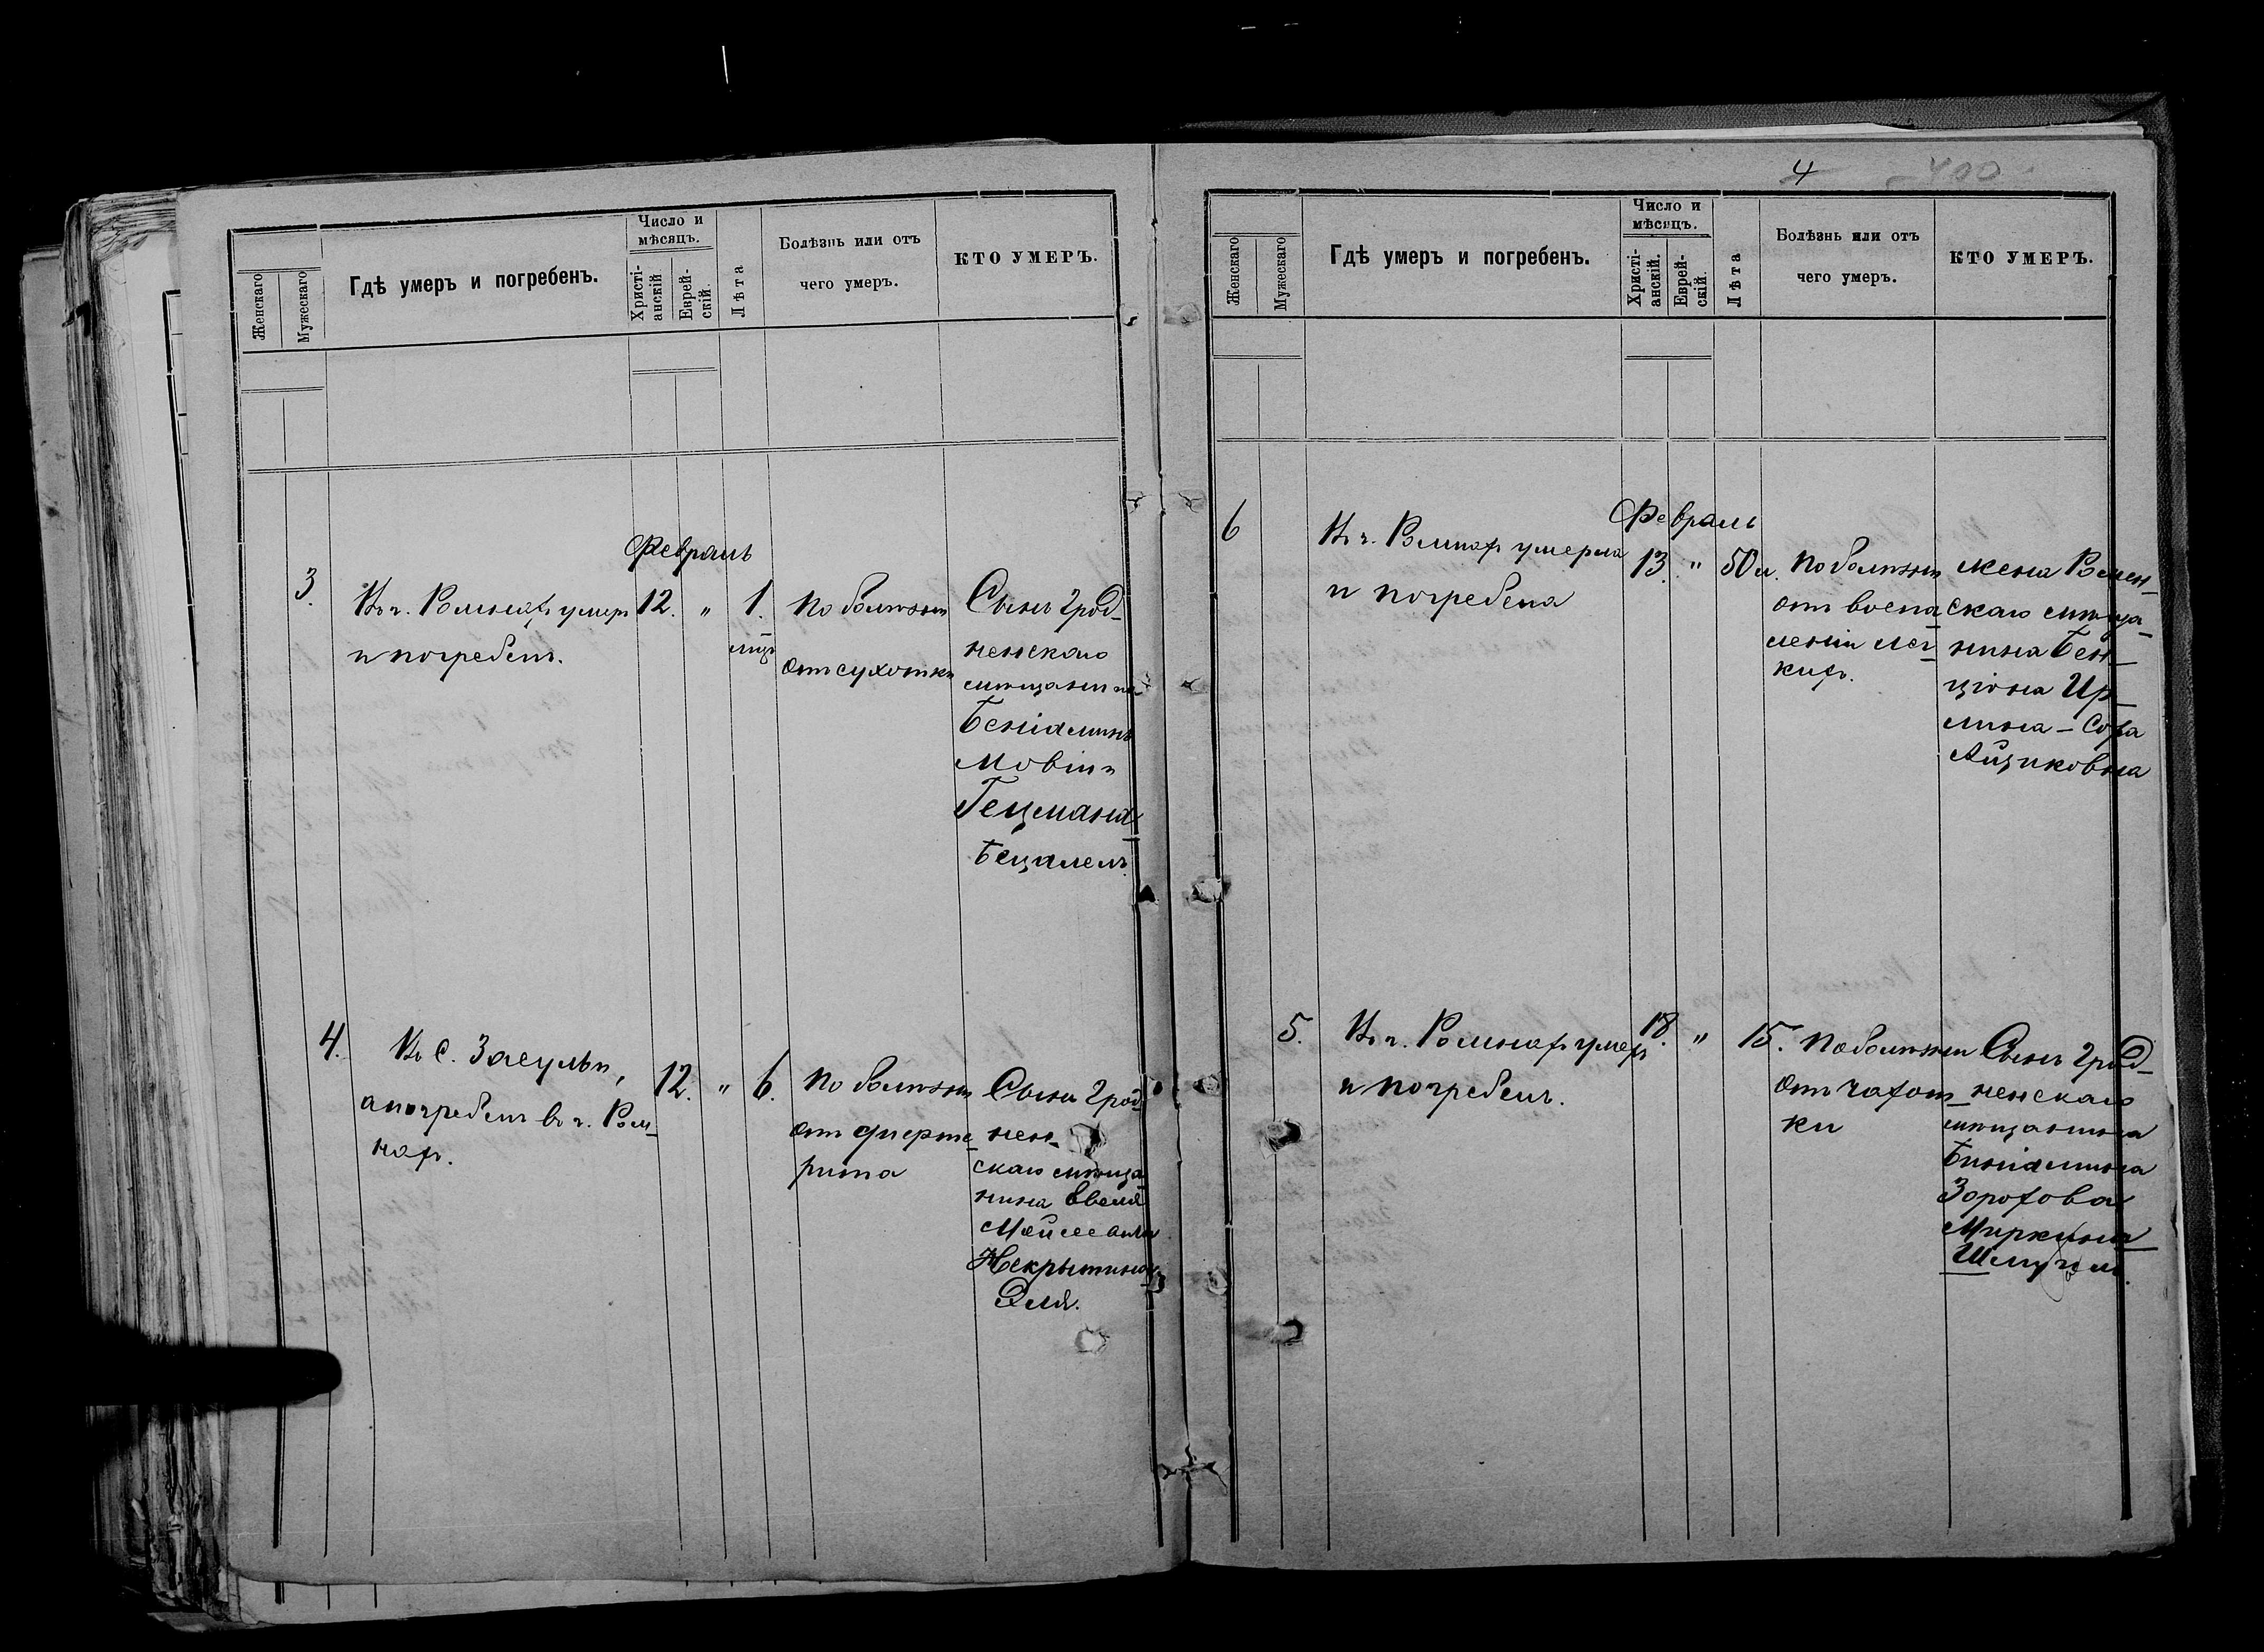 Число и
мѣсяцъ.
Женскаго
Мужескаго
Гдѣ умеръ и погребенъ.
Христі-
анскій
Еврей-
скій.
Лѣта
Болѣзнь или отъ
чего умеръ.
КТО УМЕРЪ.
Февраль
3.
Въ г. Ромнахъ умеръ
и погребенъ.
12.
"
1.
мцъ
по болѣзни
отъ сухотки
Сынъ Грод-
ненскаго
мѣщанина
Беніаминъ
Мовши
Гецмана
Бецалель.
4.
Въ с. Засульи,
а погребенъ въ г. Ром-
нахъ.
12.
"
6.
по болѣзни
отъ дифте-
рита
Сынъ Грод-
нен-
скаго мѣща-
нина
Некрытина
Эля.
4
400
Число и
мѣсяцъ.
Женскаго
Мужескаго
Гдѣ умеръ и погребенъ.
Христі-
анскій.
Еврей-
скій.
Лѣта
Болѣзнь или отъ
чего умеръ.
КТО УМЕРЪ.
Февраль
6
Въ г. Ромнахъ умерла
и погребена
13.
"
50 л.
по болѣзни
отъ воспа-
ленія лег-
кихъ.
жена Ромен-
скаго мѣща-
нина Бен-
ціона Ир-
лина - Сора
Айзиковна
5.
Въ г. Ромнахъ умеръ
и погребенъ.
18.
"
15.
по болѣзни
отъ чахот-
ки
Сынъ Грод-
ненскаго
мѣщанина
Биніамина
Зорохова
Миркина
Шмуэль.